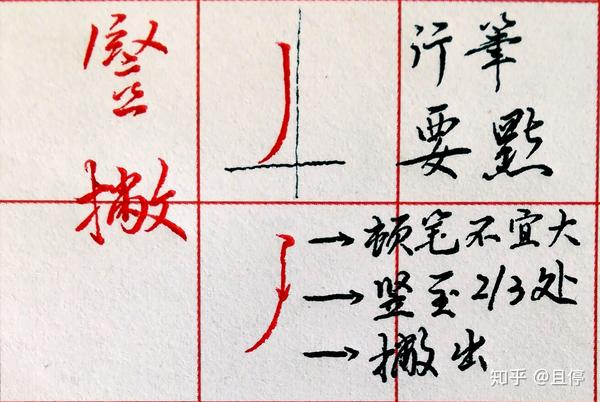 豎
撇
行筆
要點
→顿笔不宜大
→竖至2/3处
→撇出
知乎 @且停